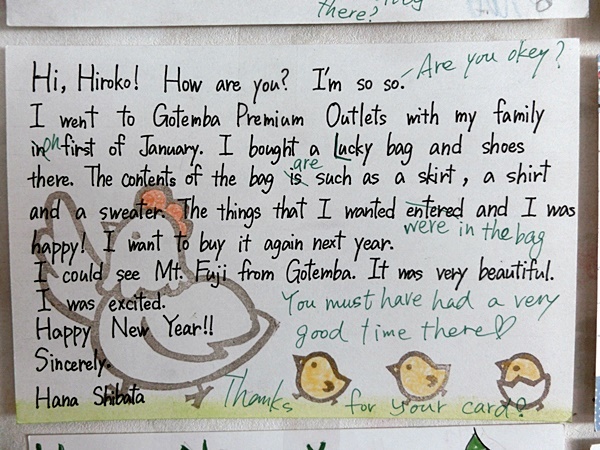 there?
Hi, Hiroko! How are you? I'm so so. Are you okey?
I went to Gotemba Premium Outlets with my family
in on first of January. I bought a Lucky bag and shoes
are
there. The contents of the bag is such as a skirt, a shirt
and a sweater. The things that I wanted entered and I was
were in the bag
happy! I want to buy it again next year.
I could see Mt. Fuji from Gotemba. It was very beautiful.
I was excited.
You must have had a very
Happy New Year!!
good time there♡
Sincerely.
Hana Shibata
Thanks for your card!